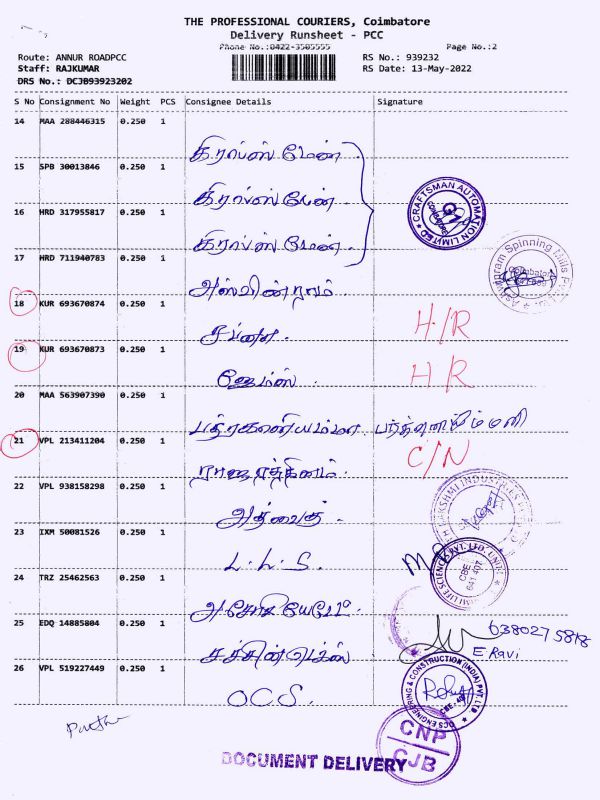 THE PROFESSIONAL COURIERS, Coimbatore
Delivery Runsheet - PCC
Phone No.:0422-3505555 Page No.:2
Route: ANNUR ROADPCC RS No.: 939232
Staff: RAJKUMAR RS Date: 13-May-2022
DRS No.: DCJB93923202
S No Consignment No Weight PCS Consignee Details Signature
14 MAA 288446315 0.250 1
கிராப்ஸ் மேன்
15 SPB 30013846 0.250 1
கிராப்ஸ் மேன்
16 HRD 317955817 0.250 1
கிராப்ஸ் மேன்
CRAFTSMAN AUTOMATION LIMITED COIMBATORE
17 HRD 711940783 0.250 1
அஸ்வின்ராம்
Spinning Mills Coimbatore
18 KUR 693670874 0.250 1
H/R
19 KUR 693670873 0.250 1
ஜேம்ஸ் H R
20 MAA 563907390 0.250 1
பத்ரகாளியம்மா
21 VPL 213411204 0.250 1
ராஜரத்தினம் C/N
22 VPL 938158298 0.250 1
அத்வைத்
LAKSHMI INDUSTRIES
23 IXM 50081526 0.250 1
L.L.S. LIFE SCIENCES PVT. LTD. CBE 641 407
24 TRZ 25462563 0.250 1
25 EDQ 14885804 0.250 1
6380275818
E Ravi
26 VPL 519227449 0.250 1
O.C.S. OCS ENGINEERING & CONSTRUCTION (INDIA) PVT. LTD
CNP
CJB
DOCUMENT DELIVERY